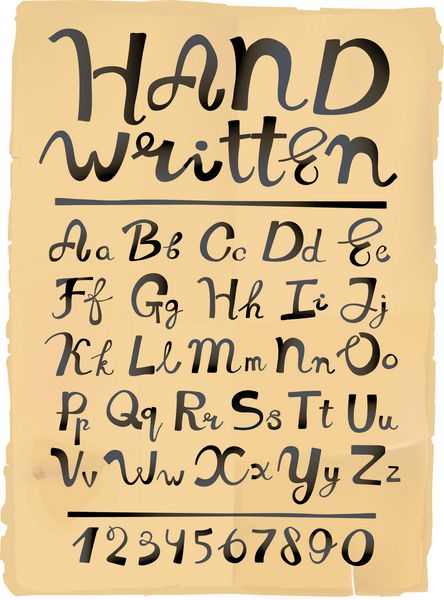 HAND
written
Aa Bb Cc Dd Ee
Ff Gg Hh Ii Jj
Kk Ll Mm Nn Oo
Pp Qq Rr Ss Tt Uu
Vv Ww Xx Yy Zz
1234567890